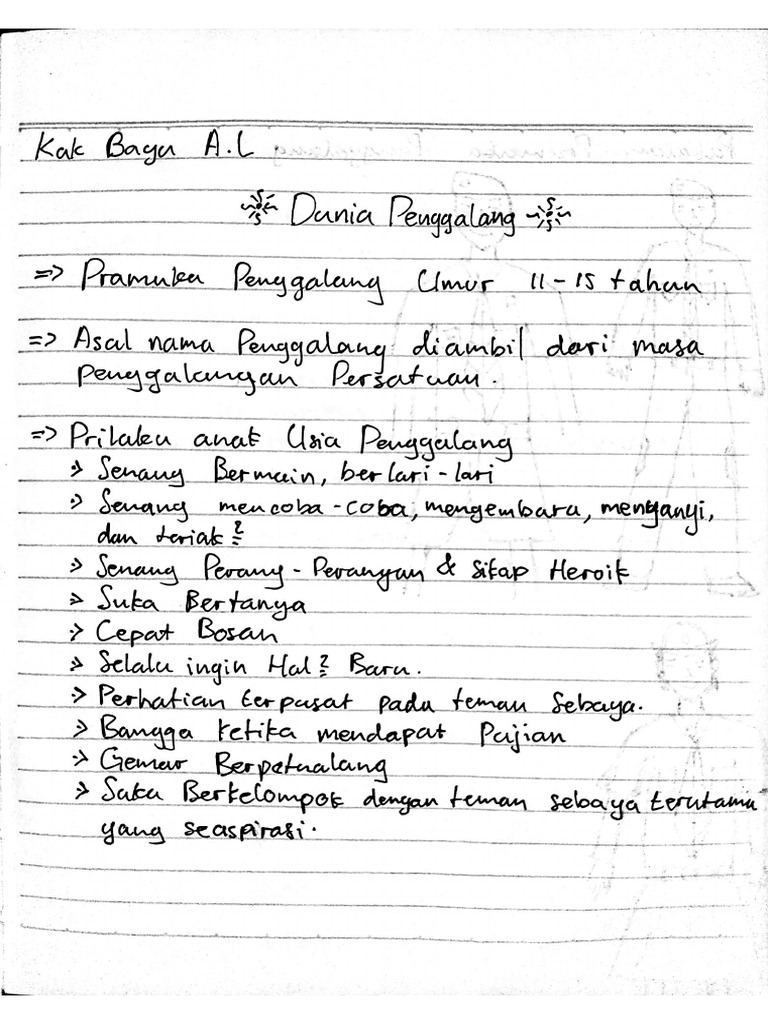 Kak Bagu A.L
Dunia Penggalang
=> Pramuka Penggalang Umur 11-15 tahun
=> Asal nama Penggalang diambil dari masa
penggalangan Persatuan.
=> Prilaku anak Usia Penggalang
> Senang Bermain, berlari-lari
> Senang mencoba-coba, mengembara, menyanyi,
dan teriak2
> Senang Perang-Perangan & Sikap Heroik
> Suka Bertanya
> Cepat Bosan
> Selalu ingin Hal2 Baru.
> Perhatian terpusat pada teman Sebaya.
> Bangga ketika mendapat Pujian
> Gemar Berpetualang
> Suka Berkelompok dengan teman sebaya terutama
yang seaspirasi.